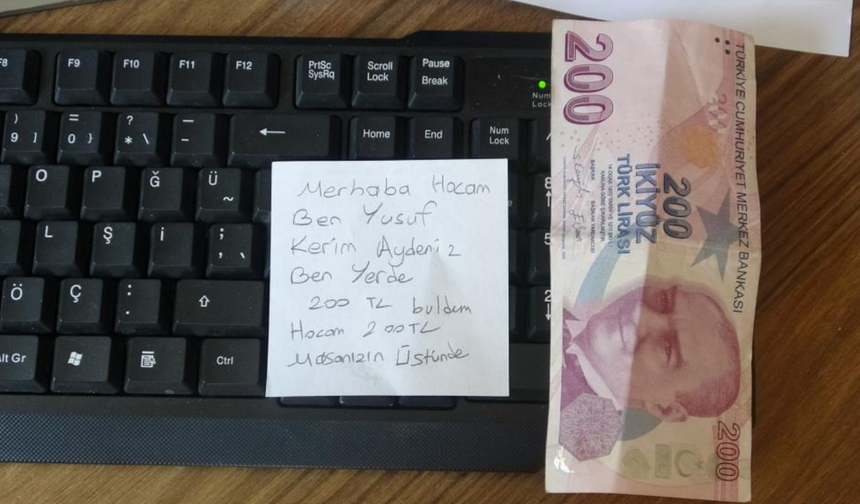 F8 F9 F10 F11 F12 PrtSc SysRq Scroll Lock Pause Break
Num Lock
) 9 ] = 0 } ? * \ _ - ← Home End Num Lock /
O P Ğ Ü ~ 8 ↑
L Ş İ ; , ` 5
Ö Ç : . ⇧ 2 ↓
Alt Gr Ctrl
Merhaba Hocam
Ben Yusuf
Kerim Aydeniz
Ben Yerde
200 TL buldum
Hocam 200TL
Masanızın Üstünde
TÜRKİYE CUMHURİYET MERKEZ BANKASI
200
200
İKİYÜZ
TÜRK LİRASI
BAŞKAN
BAŞKAN YARDIMCISI
200